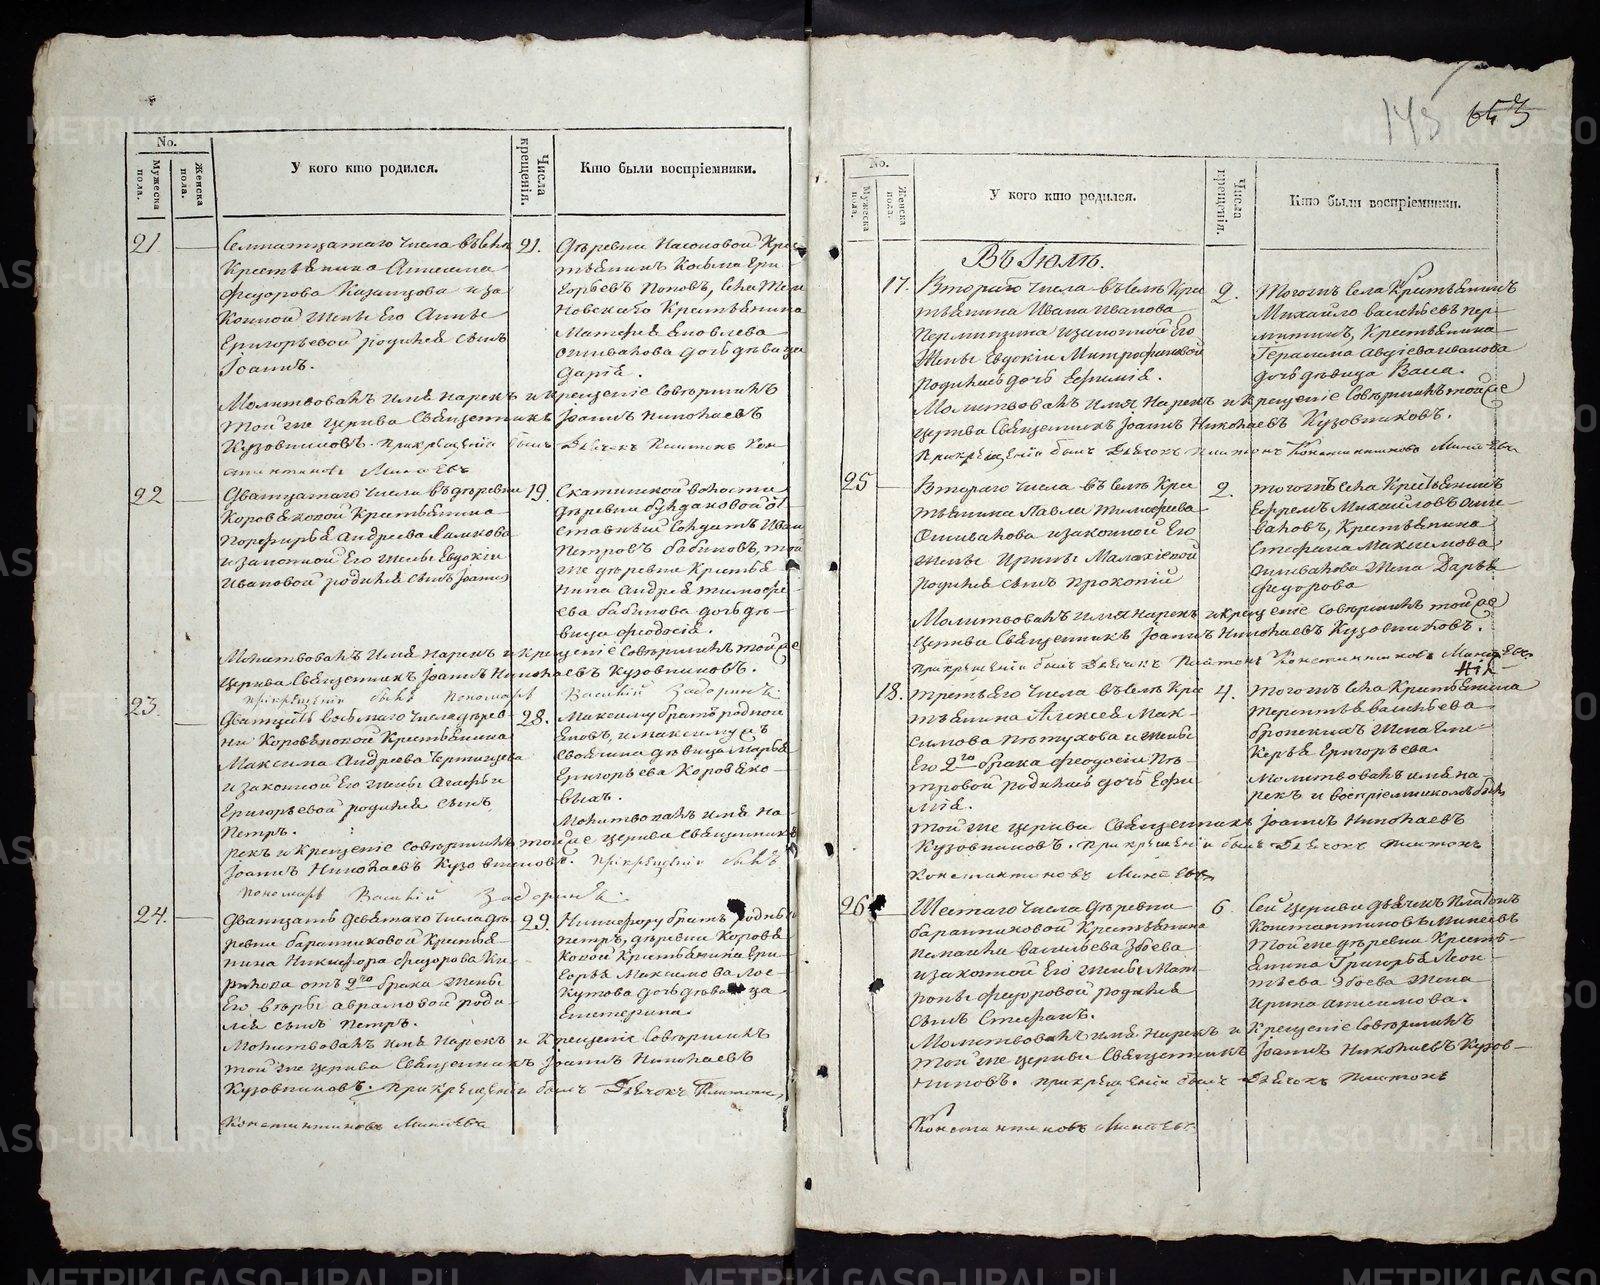 No.
Мужеска пола.
Женска пола.
У кого кто родился.
Числа крещенія.
Кто были воспріемники.
21
числа въ селѣ
Крестьянина
Федорова Казанцова и за
конной жены его Анны
Григорьевой родился сынъ
Іоаннъ.
21.
Деревни Насоновой Крес
тьянинъ Косьма Гри
горьевъ Поповъ, села
Крестьянина
Матфея Яковлева
Ошивалова дочь дѣвица
Дарія.
Молитвовалъ имя нарекъ и крещеніе совершилъ
той же церкви Священникъ Іоаннъ Николаевъ
Кузовниковъ. При крещеніи былъ Дьячокъ Платонъ Кон
стантиновъ Минѣевъ
22
Дватцатаго числа въ деревни
Коровяковой Крестьянина
Порфирья Андреева
и законной его жены Евдокіи
Ивановой родился сынъ Іоаннъ
19.
волости
деревни от
ставный солдатъ Иван
Петровъ Бабиновъ, той
же деревни Крестья
нина Андрея Тимофе
ева Бабинова дочь дѣ
вица Феодосія.
Молитвовалъ имя нарекъ и крещеніе совершилъ той же
церкви Священникъ Іоаннъ Николаевъ Кузовниковъ.
при крещеніи былъ пономарь Василій Задоринъ.
23
Дватцать восьмаго числа дерев
ни Коровяковой Крестьянина
Максима Андреева
и законной его жены Агафьи
Григорьевой родился сынъ
Петръ.
28.
Максиму братъ родной
и Максиму жъ
дѣвица Марья
Григорьева Коровяко
выхъ.
Молитвовалъ имя на
рекъ и крещеніе совершилъ той же церкви Священникъ
Іоаннъ Николаевъ Кузовниковъ. При крещеніи былъ
пономарь Василій Задоринъ.
24.
Дватцать девятаго числа де
ревни Баранниковой Крестья
нина Никифора Федорова Ки
рилова отъ 2го брака жены
его Вѣры Аврамовой роди
лся сынъ Петръ.
29.
Никифору братъ родный
Петръ, деревни Коровя
ковой Крестьянина Гри
горья Максимова Лос
кутова дочь дѣвица
Екатерина.
Молитвовалъ имя нарекъ и Крещеніе совершилъ
той же церкви Священникъ Іоаннъ Николаевъ
Кузовниковъ. При крещеніи былъ Дьячокъ Платонъ
Константиновъ Минѣевъ
No.
Мужеска пола.
Женска пола.
У кого кто родился.
Числа крещенія.
Кто были воспріемники.
Въ Іюлѣ.
17.
Втораго числа въ селѣ Крес
тьянина Ивана Иванова
Пермикина и законной его
жены Евдокіи Митрофановой
родилась дочь Ефимія.
2.
Тогожъ села Крестьянинъ
Михайло Васильевъ Пер
микинъ, Крестьянина
Герасима
дочь дѣвица Васа.
Молитвовалъ имя нарекъ и крещеніе совершилъ той же
церкви Священникъ Іоаннъ Николаевъ Кузовниковъ.
При крещеніи былъ Дьячокъ Платонъ Константиновъ Минѣевъ
25
Втораго числа въ селѣ Крес
тьянина Павла Тимофеева
Ошивалова и законной его
жены Ирины Малахіевой
родился сынъ Прокопій
2.
Тогожъ села Крестьянинъ
Ефремъ Михайловъ Оши
валовъ, Крестьянина
Стефана Максимова
Ошивалова жена Дарья
Федорова
Молитвовалъ имя нарекъ и крещеніе совершилъ той же
церкви Священникъ Іоаннъ Николаевъ Кузовниковъ.
При крещеніи былъ Дьячокъ Платонъ Константиновъ Минѣевъ
18.
Третьего числа въ селѣ Крес
тьянина Алексея Мак
симова Пѣтухова и жены
его 2го брака Феодосіи Пе
тровой родилась дочь Ефи
мія.
4.
Тогожъ села Крестьянина
Терентья Васильева
жена Гли
керья Григорьева.
Молитвовалъ имя на
рекъ и воспріемникомъ былъ
той же церкви Священникъ Іоаннъ Николаевъ
Кузовниковъ. При крещеніи былъ Дьячокъ Платонъ
Константиновъ Минѣевъ
26
Шестаго числа деревни
Баранниковой Крестьянина
Васильева Збоева
и законной его жены Мат
роны Федоровой родился
сынъ Стефанъ.
6.
Сей церкви дьячекъ Платонъ
Константиновъ Минеевъ
той же деревни Кресть
янина Григорья Леон
тьева Збоева жена
Ирина Анисимова.
Молитвовалъ имя нарекъ и Крещеніе совершилъ
той же церкви Священникъ Іоаннъ Николаевъ Кузов
никовъ. При крещеніи былъ Дьячокъ Платонъ
Константиновъ Минѣевъ
METRIKI.GASO-URAL.RU